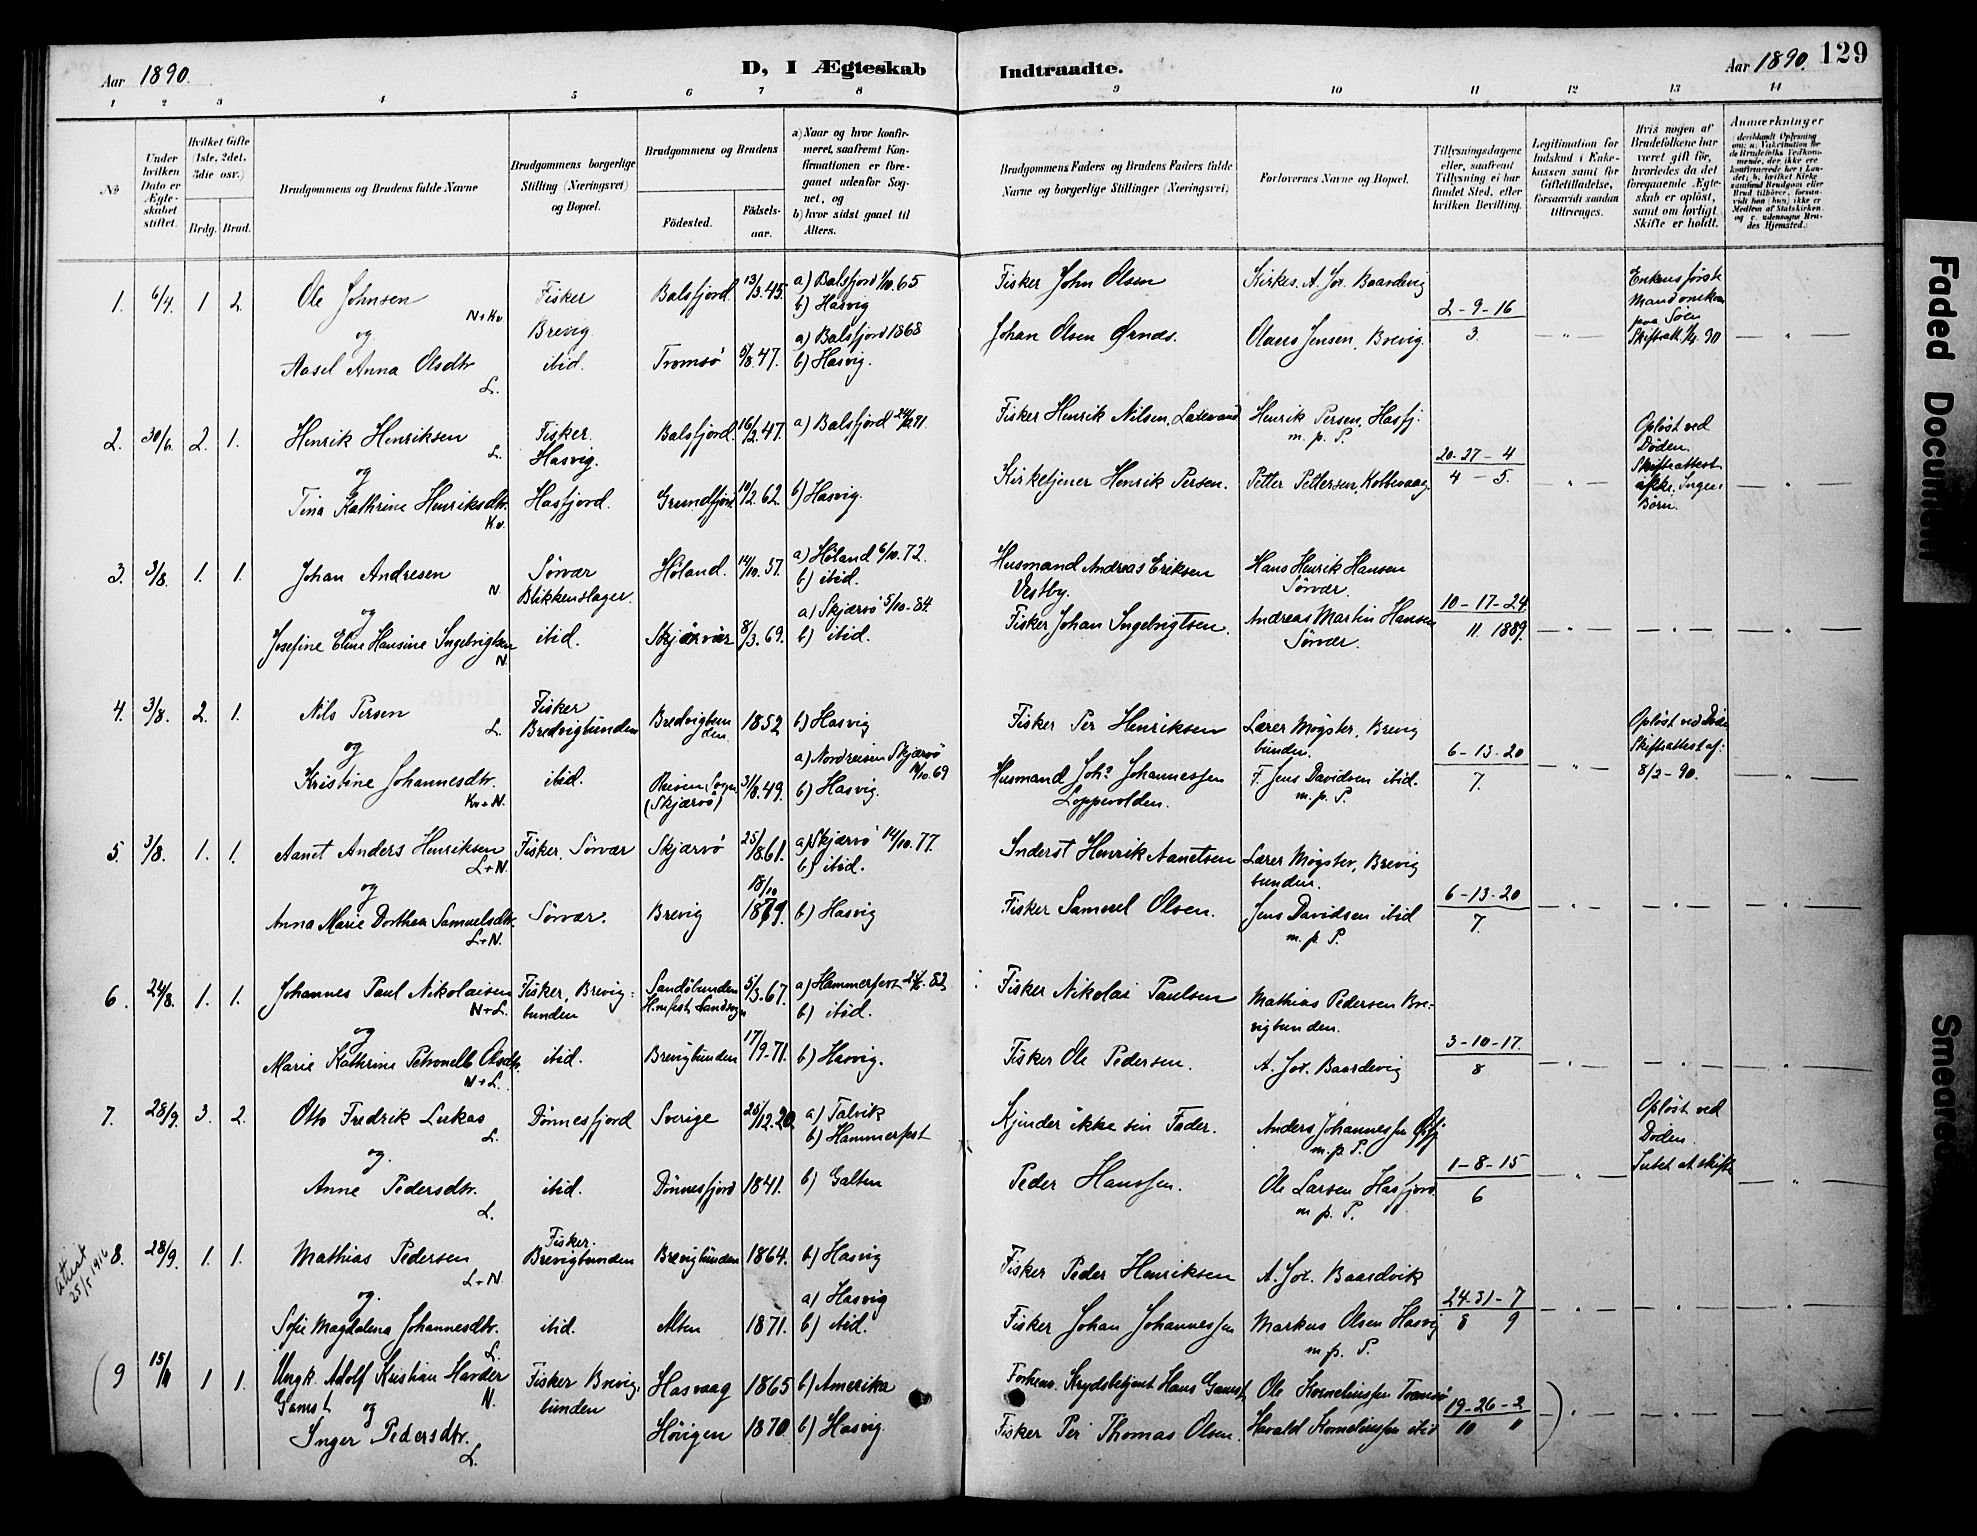 Aar 1890.
D, I Ægteskab
Indtraadte.
Aar 1890. 129
1 2 3 4 5 6 7 8 9 10 11 12 13 14
No
Under hvilken Dato er Ægteskabet stiftet.
Hvilket Gifte (1ste, 2det, 3die osv.)
Brdg. Brud.
Brudgommens og Brudens fulde Navne
Brudgommens borgerlige Stilling (Næringsvei) og Bopæl.
Brudgommens og Brudens
Fødested.
Fødselsaar.
a) Naar og hvor konfirmeret, saafremt Konfirmationen er foregaaet udenfor Sognet, og
b) hvor sidst gaaet til Alters.
Brudgommens Faders og Brudens Faders fulde Navne og borgerlige Stillinger (Næringsvei)
Forlovernes Navne og Bopæl.
Tillysningsdagene eller, saafremt Tillysning ei har fundet Sted, efter hvilken Bevilling.
Legitimation for Indskud i Enkekassen samt for Giftetilladelse, forsaavidt saadan tiltrænges.
Hvis nogen af Brudefolkene har været gift før, hvorledes da det foregaaende Ægteskab er opløst, samt om lovligt Skifte er holdt.
Anmærkninger
1. 6/4 1 2 Ole Johnsen N+Kv Fisker Brevig Balsfjord 13/3 45. a) Balsfjord 1/10.65 b) Hasvig Fisker John Olsen Kirkes. A. Jox. Baardvig 2-9-16 3. Enkens første Mand omkom paa Søen Skifteatt. 90
og
Aasel Anna Olsdtr L. ibid. Tromsø 5/8.47. a) Balsfjord 1868 b) Hasvig. Johan Olsen Ørnæs. Olaus Jensen, Brevig.
2. 30/6. 2. 1. Henrik Henriksen L. Fisker. Hasvig. Balsfjord. 16/2.47. a) Balsfjord Fisker Henrik Nilsen, Henrik Persen, Hasfj. m. p. P. 20-27-4 4-5. Opløst ved Døden. Skifteattest ikke. Ingen Børn.
og
Tina Kathrine Henriksdtr. Kv. Hasfjord. Grundfjord 19/2 62. b) Hasvig. Kirketjener Henrik Persen. Petter Pettersen, Kobbevaag.
3. 3/8. 1. 1. Johan Andresen N. Sørvær Blikkenslager. Høland. 14/10.57. a) Høland 6/10.72. b) ibid. Husmand Andreas Eriksen Vestby. Hans Henrik Hansen Sørvær. 10-17-24 11. 1889.
og
Josefine Eline Hansine Ingebrigtsen N. ibid. Skjærvør 8/3.69. a) Skjærvø 5/10-84. b) ibid. Fisker Johan Ingebrigtsen. Andreas Martin Hansen Sørvær.
4. 3/8. 2. 1. Nils Persen L. Fisker Bredvigbunden Bredvigbunden 1852 b) Hasvig Fisker Per Henriksen Lærer Møgster, Brevigbunden. 6-13-20 7. Opløst ved Døden Skifteattest af: 8/2-90.
og
Kristine Johannesdtr. Kv+N. ibid. Reisen Sogn (Skjærvø) 31/8.49. a) Nordreisen Skjærvø /10.69 b) Hasvig. Husmand Johs. Johannessen Loppevolden. F. Jens Davidsen ibid. m. p. P.
5. 3/8. 1. 1. Aanet Anders Henriksen L+N. Fisker, Sørvær Skjærvø 25/1861. a) Skjærvø 14/10.77. b) ibid. Inderst Henrik Aanetsen Lærer Møgster, Brevigbunden. 6-13-20 7.
og
Anna Marie Dorthea Samuelsdtr. L+N. Sørvær. Brevig 18/10 1869. b) Hasvig Fisker Samuel Olsen. Jens Davidsen ibid m. p. P.
6. 24/8. 1. 1. Johannes Paul Nikolaisen N+L. Fisker, Brevigbunden Sandøbunden H.mfest Landsogn 5/3.67. a) Hammerfest 82, b) ibid. Fisker Nikolai Paulsen Mathias Pedersen Brevigbunden. 3-10-17. 8
og
Marie Kathrine Petronelle Olsdtr. N+L. ibid. Brevigbunden 17/9-71. b) Hasvig. Fisker Ole Pedersen. A. Jox. Baardvig
7. 28/9. 3. 2. Otto Fredrik Lukas L. Dønnesfjord Sverige 25/12.20. a) Talvik b) Hammerfest Kjender ikke sin Fader. Anders Johannessen m. p. P. 1-8-15 6 Opløst ved Døden. Intet at skifte
og.
Anne Pedersdtr. L. ibid. Dønnesfjord 1841. b) Galten Peder Hanssen. Ole Larsen Hasfjord. m. p. P.
Attest 25/5 1916
8. 28/9. 1. 1. Mathias Pedersen L+N. Fisker. Brevigbunden Brevigbunden 1864. b) Hasvig Fisker Peder Henriksen A. Jox. Baardvik 24-31-7 8 9
og.
Sofie Magdalena Johannesdtr. L. ibid. Alten 1871. a) Hasvig b) ibid. Fisker Johan Johannessen Markus Olsen Hasvig m. p. P.
(9 15/11 1 1. Ungk. Adolf Kristian Harder Gamst N. Fisker Brevigbunden Hasvaag 1865 b) Amerika Forhenv. Krydsbetjent Hans Gamst, Ole Korneliussen Tromsø 19-26-2 10 11 )
og
Inger Pedersdtr. L. Høigen 1870 b) Hasvig. Fisker Per Thomas Olsen. Harald Korneliussen ibid
Faded Document
Smeared